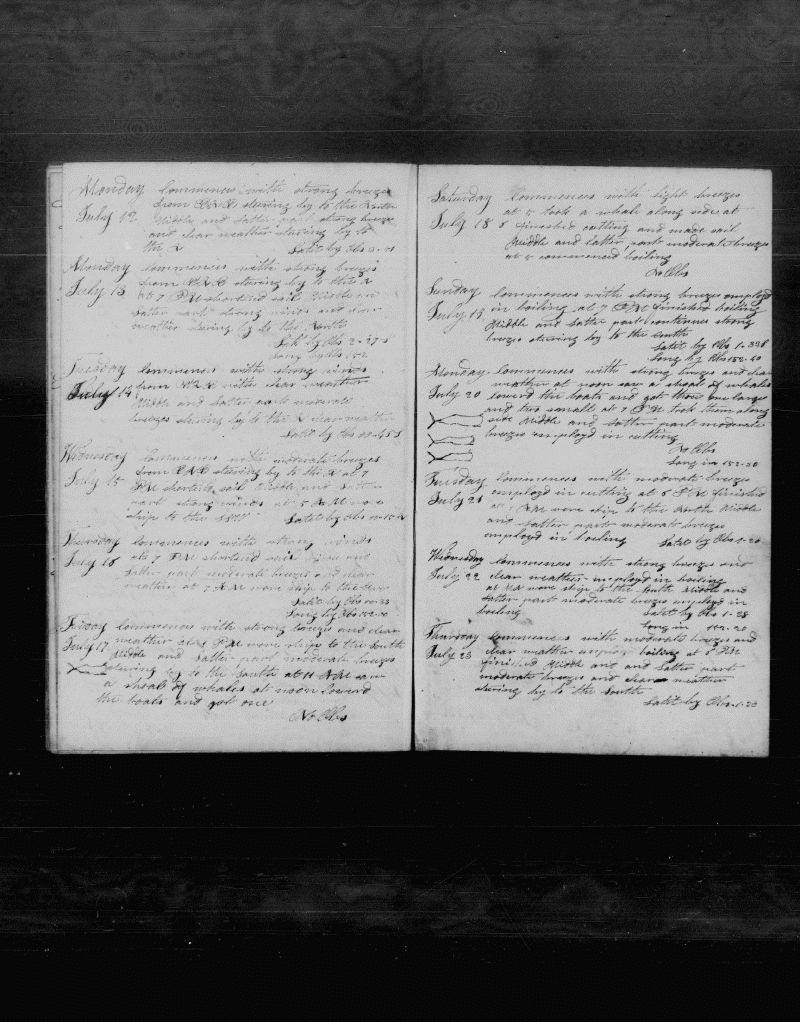 Monday Commences with strong breeze
July 12 from steering by to the
Middle and Latter part strong breeze
and clear weather steering by to
the Latd by Obs
Monday Commences with strong breezes
July 13 from steering by to the
at 7 PM shortened sail Middle and
Latter part strong winds and clear
weather steering by to the North
Latd by Obs 2-27 S
Long by Obs 152
Tuesday Commences with strong winds
July 14 from with clear weather
Middle and Latter part moderate
breezes steering by to the clear weather
Latd by Obs
Wednesday Commences with moderate breezes
July 15 from steering by to the at 7
PM shortened sail Middle and Latter
part strong winds at 5 AM wore
ship to the Latd by Obs
Thursday Commences with strong winds
July 16 at 7 PM shortened sail and
Latter part moderate breezes and clear
weather at 7 AM wore ship to the
Latd by Obs
Long by Obs
Friday Commences with strong breezes and clear
July 17 weather PM wore ship to the South
Middle and Latter part moderate breezes
steering by to the South at 11 AM saw
a shoal of whales at noon lowerd
the boats and got one
No Obs
Saturday Commences with light breezes
at 5 took a whale along side at
July 18 8 finished cutting and made sail
Middle and Latter part moderate breezes
at 5 commenced boiling
No Obs
Sunday Commences with strong breeze employd
July 19 in boiling at 7 PM finished boiling
Middle and Latter part continues strong
breeze steering by to the South
Latd by Obs 1-33 S
Long by Obs 152-40
Monday Commences with strong breezes and clear
weather at noon saw a shoal of whales
July 20 lowerd the boats and got three one large
and two small at 7 PM took them along
side Middle and Latter part moderate
breezes employd in cutting
No Obs
Long in 152-20
Tuesday Commences with moderate breeze
July 21 employd in cutting at 6 PM finished
at AM wore ship to the North Middle
and Latter part moderate breeze
employd in boiling Latd by Obs 1-20
Wednesday Commences with strong breeze and
July 22 clear weather employd in boiling
at wore ship to the South Middle and
Latter part moderate breeze employd in
boiling Latd by Obs 1-28
Long in 152-20
Thursday Commences with moderate breeze and
July 23 clear weather employd boiling at 8 PM
finished Middle and and Latter part
moderate breezes and clear weather
steering by to the South
Latd by Obs 1-20